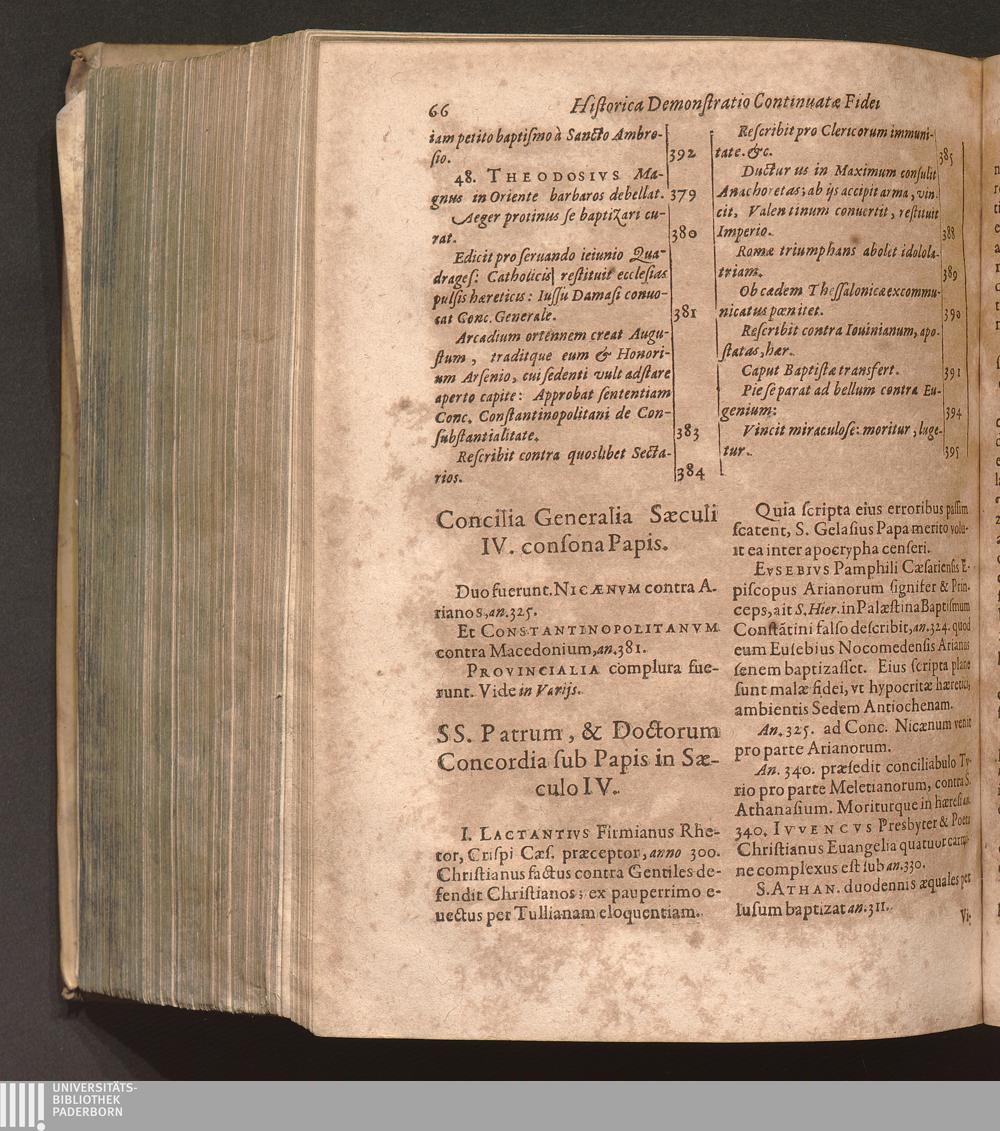 66 Historica Demonstratio Continuatæ Fidei
iam petito baptismo à Sancto Ambro-
sio. 392
48. THEODOSIVS Ma-
gnus in Oriente barbaros debellat. 379
Aeger protinus se baptizari cu-
rat. 380
Edicit pro seruando ieiunio Qua-
drages: Catholicis restituit ecclesias
pulsis hæreticis: Iussu Damasi conuo-
cat Conc. Generale. 381
Arcadium ortennem creat Augu-
stum, traditque eum & Honori-
um Arsenio, cui sedenti vult adstare
aperto capite: Approbat sententiam
Conc. Constantinopolitani de Con-
substantialitate. 383
Rescribit contra quoslibet Secta-
rios. 384
Rescribit pro Clericorum immuni-
tate. &c. 385
Ductur us in Maximum consulit
Anachoretas; ab ijs accipit arma, vin
cit, Valentinum conuertit, restituit
Imperio. 388
Romæ triumphans abolet idolola-
triam. 389
Ob cædem Thessalonicæ excommu-
nicatus pœnitet. 390
Rescribit contra Iouinianum, apo-
statas, hær.
Caput Baptistæ transfert. 391
Pie se parat ad bellum contra Eu-
genium: 394
Vincit miraculose: moritur, luge-
tur. 395
Concilia Generalia Sæculi
IV. consona Papis.
Duo fuerunt. NICÆNVM contra A-
rianos, an. 325.
Et CONSTANTINOPOLITANVM
contra Macedonium, an. 381.
PROVINCIALIA complura fue-
runt. Vide in Varijs.
SS. Patrum, & Doctorum
Concordia sub Papis in Sæ-
culo IV.
I. LACTANTIVS Firmianus Rhe-
tor, Crispi Cæs. præceptor, anno 300.
Christianus factus contra Gentiles de-
fendit Christianos; ex pauperrimo e-
uectus per Tullianam eloquentiam.
Quia scripta eius erroribus passim
scatent, S. Gelasius Papa merito volu-
it ea inter apocrypha censeri.
EVSEBIVS Pamphili Cæsariensis E-
piscopus Arianorum signifer & Prin-
ceps, ait S. Hier. in Palæstina Baptismum
Constãtini falso describit, an. 324. quod
eum Eusebius Nocomedensis Arianus
senem baptizasset. Eius scripta plane
sunt malæ fidei, vt hypocritæ hæretici,
ambientis Sedem Antiochenam.
An. 325. ad Conc. Nicænum venit
pro parte Arianorum.
An. 340. præsedit conciliabulo Ty-
rio pro parte Meletianorum, contra S.
Athanasium. Moriturque in hæresi an.
340. IVVENCVS Presbyter & Poeta
Christianus Euangelia quatuor carmi-
ne complexus est sub an. 330.
S. ATHAN. duodennis æquales per
lusum baptizat an. 311.
Vi-
UNIVERSITÄTS-
BIBLIOTHEK
PADERBORN